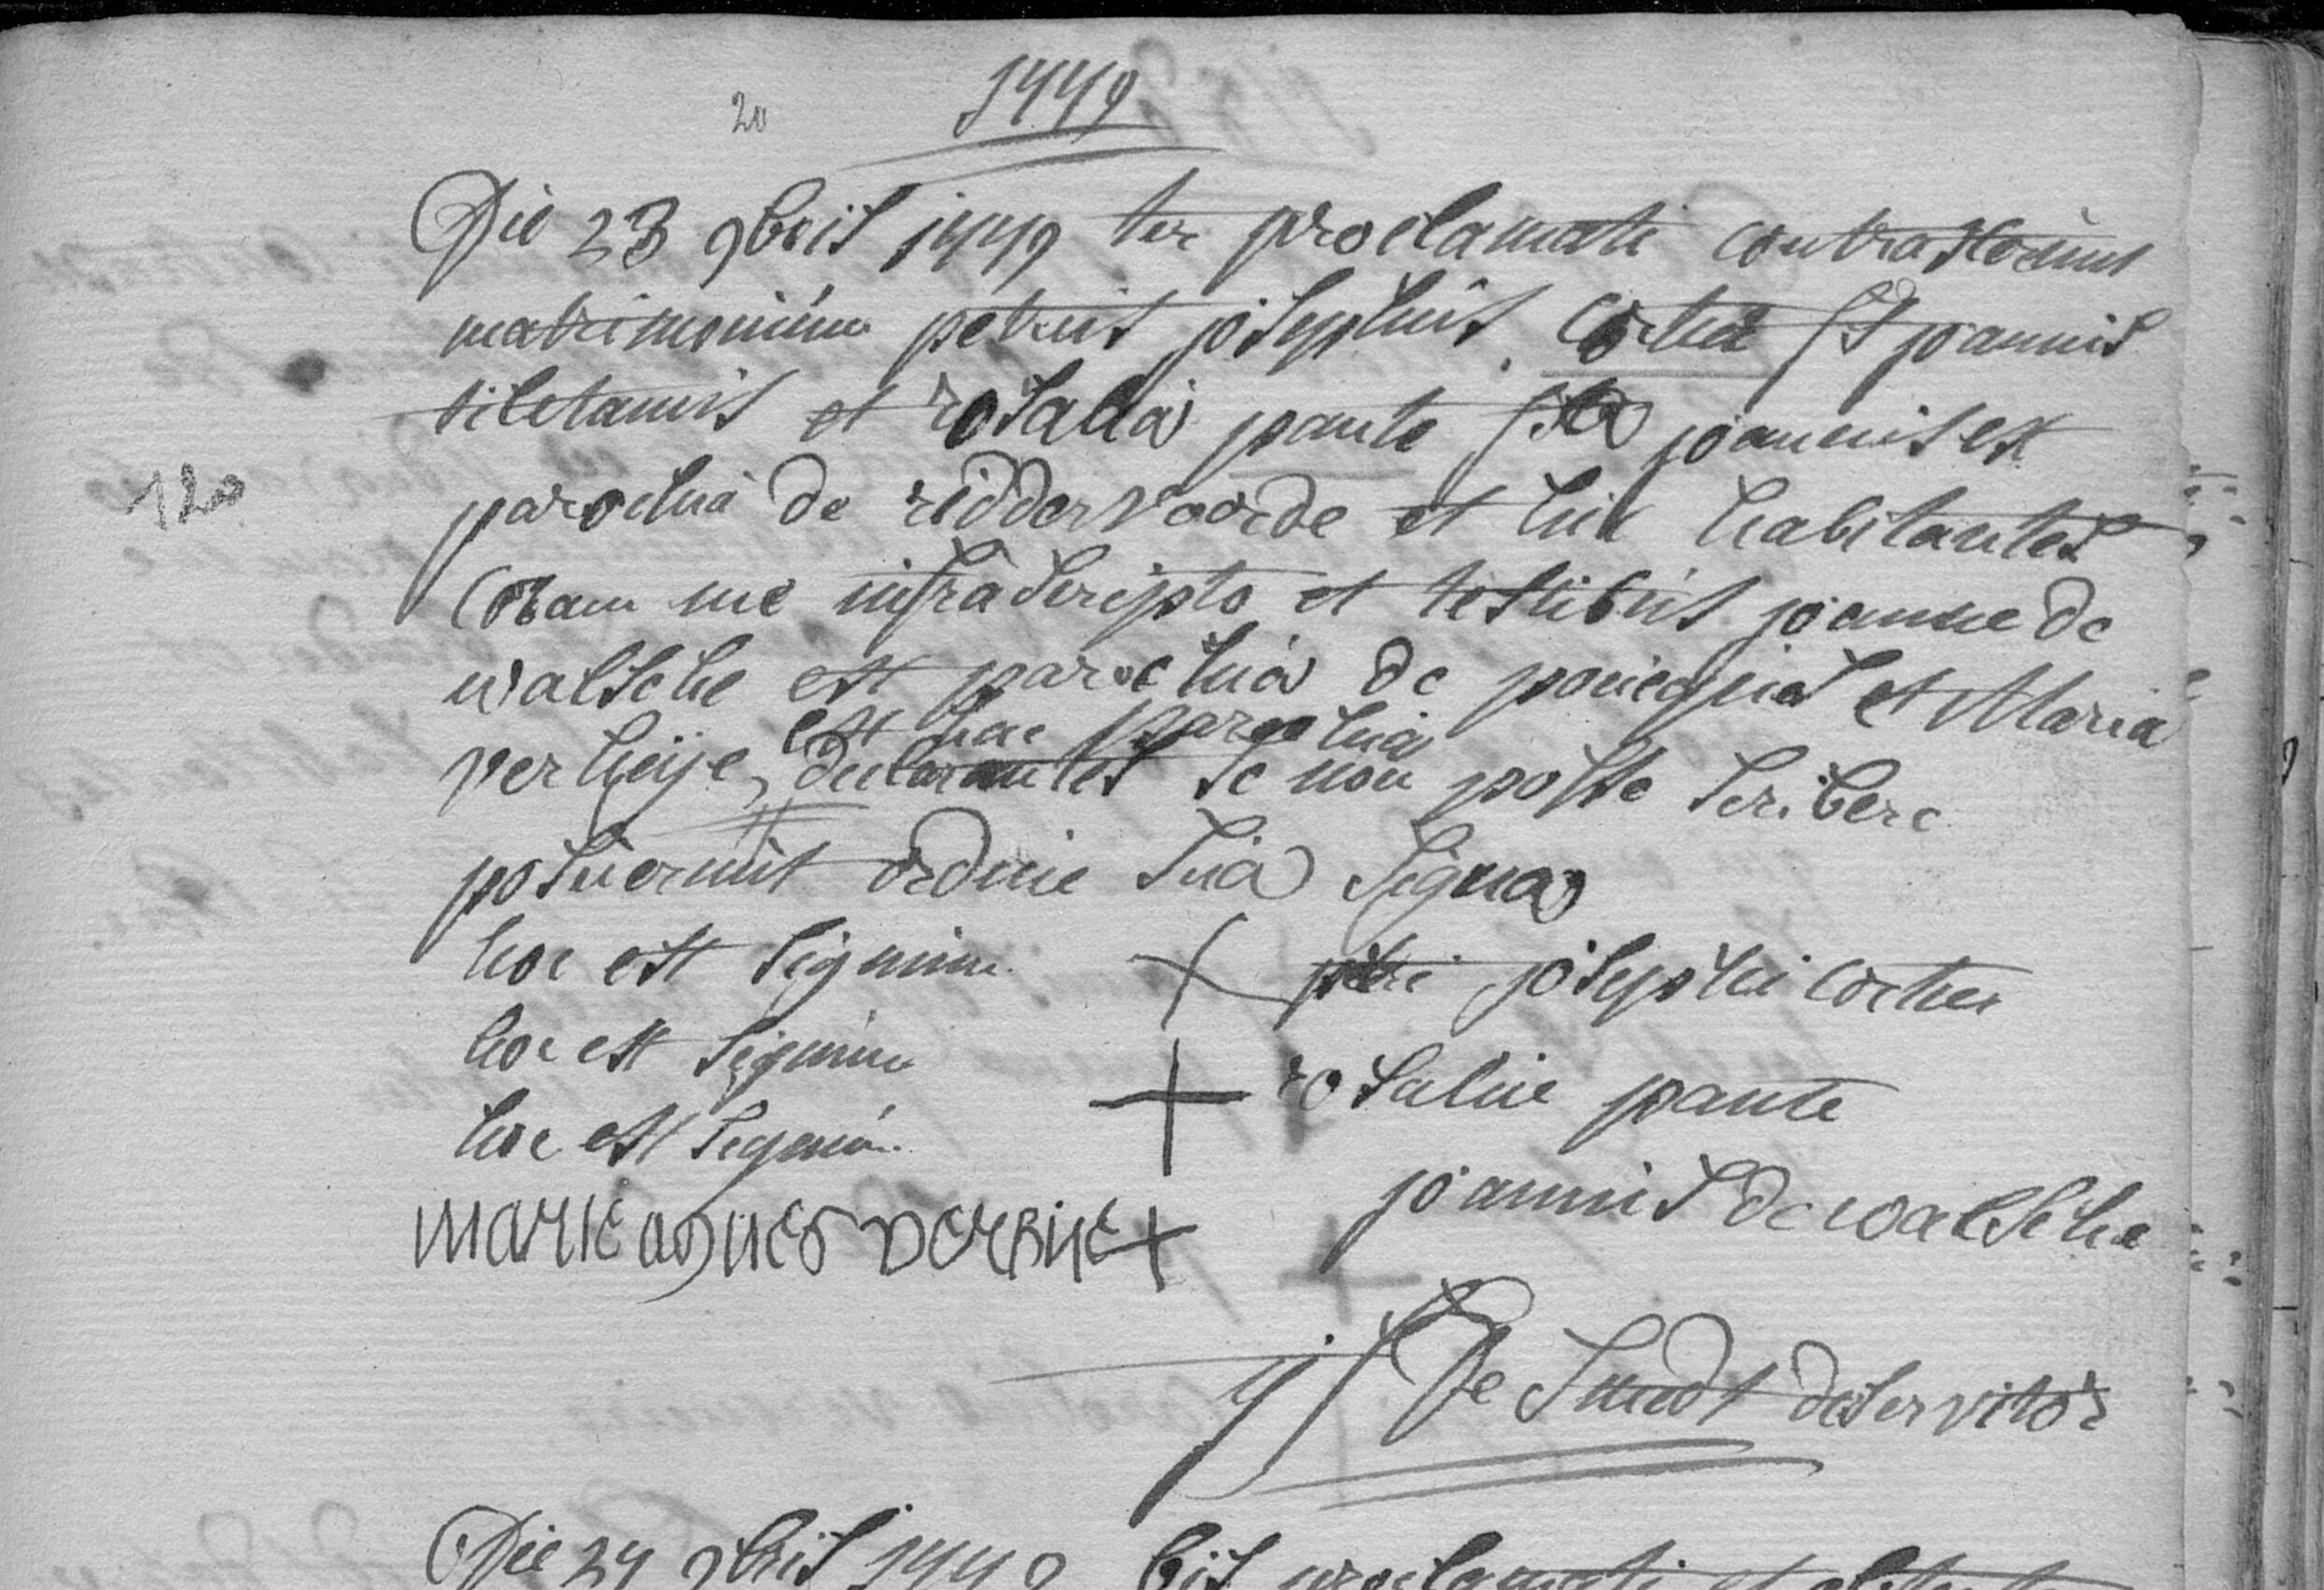 20
1779
Die 23 9bris 1779 ter proclamati contraxerunt
matrimonium petrus josephus cocher fs joannis
et rosalia pante fa joannis ex
parochia de riddervoorde et hic habitantes
coram me infrascripto et testibus joanne de
walsche ex parochia de et Maria
ex hac parochia
verheije, declarantes se non posse scribere
posuerunt ordine sua signa
hoc est signum + petri josephi cocher
hoc est signum + rosaliae pante
hoc est signum joannis de walsche
MARIE AGNES VERHIJE +
j f De Smedt deservitor
120
Die 24 9bris 1779 bis proclamati et